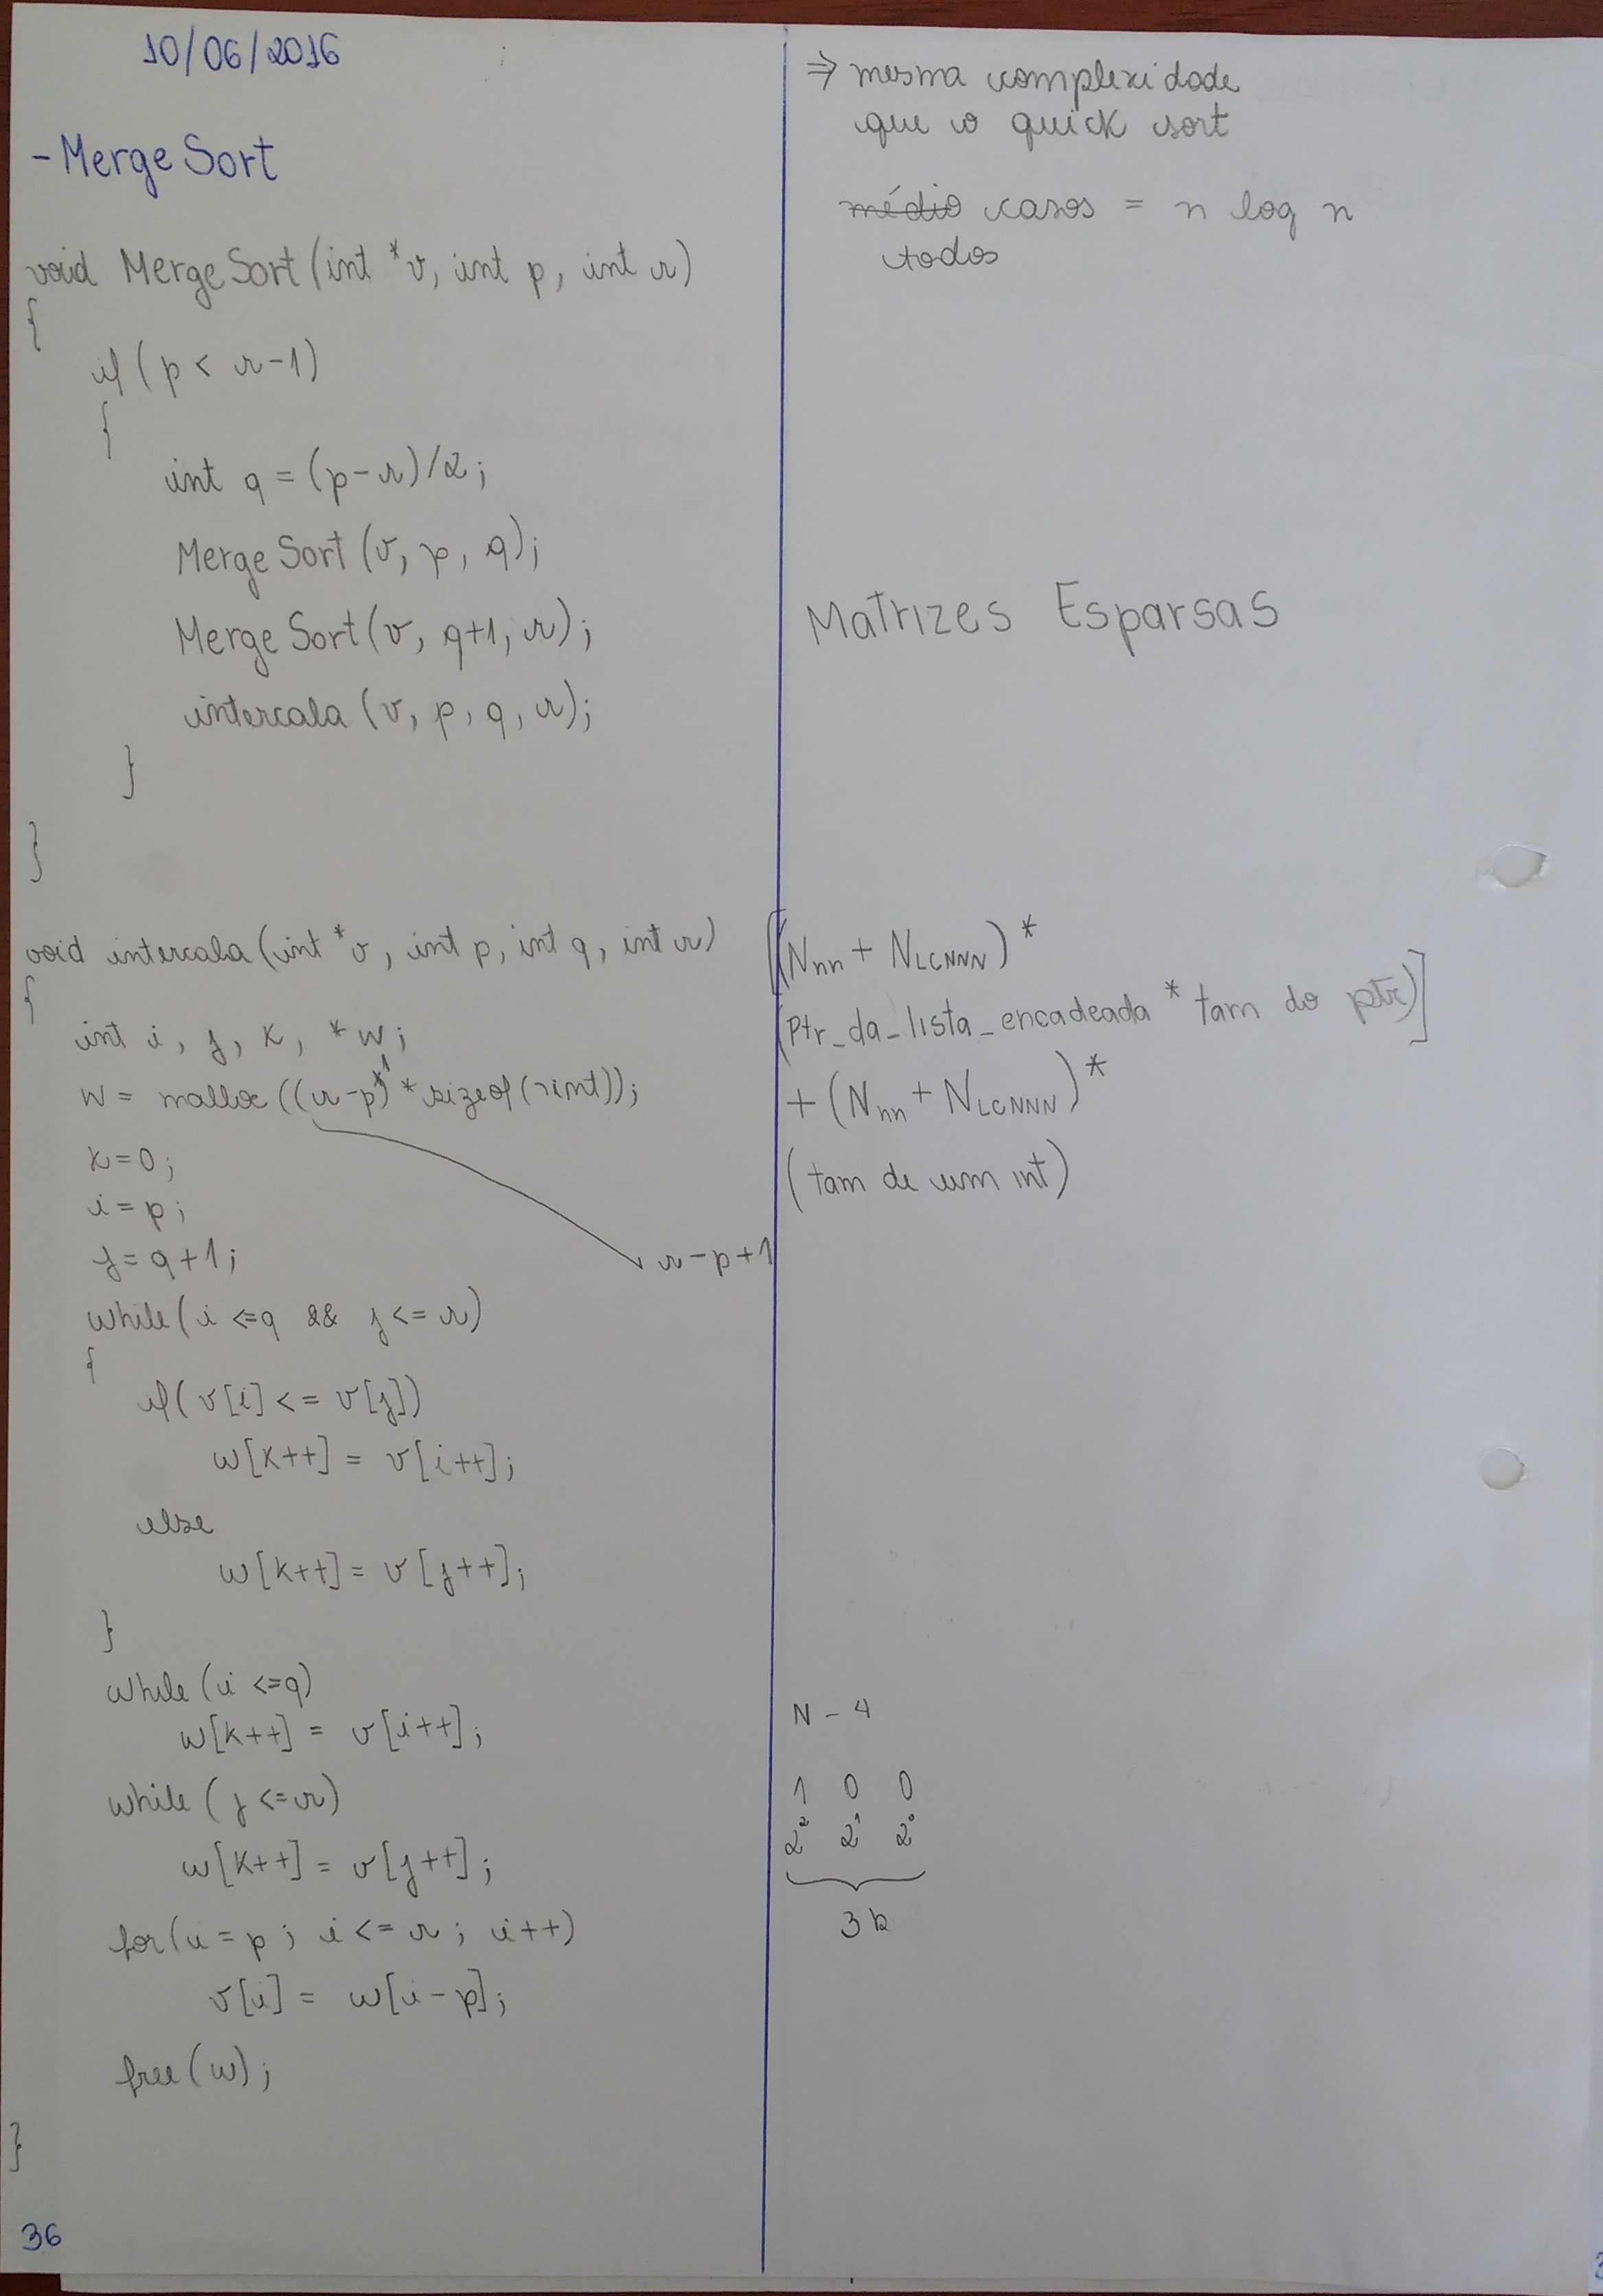 10/06/2016
- Merge Sort
void Merge Sort (int *v, int p, int r)
{
if (p < r-1)
{
int q = (p-r)/2;
Merge Sort (v, p, q);
Merge Sort (v, q+1, r);
intercala (v, p, q, r);
}
}
void intercala (int *v, int p, int q, int r)
{
int i, j, k, *w;
w = malloc ((r-p) * sizeof(int));
r-p+1
k=0;
i=p;
j=q+1;
while (i <=q && j <= r)
{
if (v[i] <= v[j])
w[k++] = v[i++];
else
w[k++] = v[j++];
}
while (i <=q)
w[k++] = v[i++];
while (j <=r)
w[k++] = v[j++];
for (i = p; i <= r; i++)
v[i] = w[i-p];
free (w);
}
36
⇒ mesma complexidade
que o quick sort
médio casos = n log n
todos
Matrizes Esparsas
[(Nnn + NLCNNN) *
(Ptr_da_lista_encadeada * tam do ptr)]
+ (Nnn + NLCNNN) *
(tam de um int)
N - 4
1 0 0
2² 2¹ 2⁰